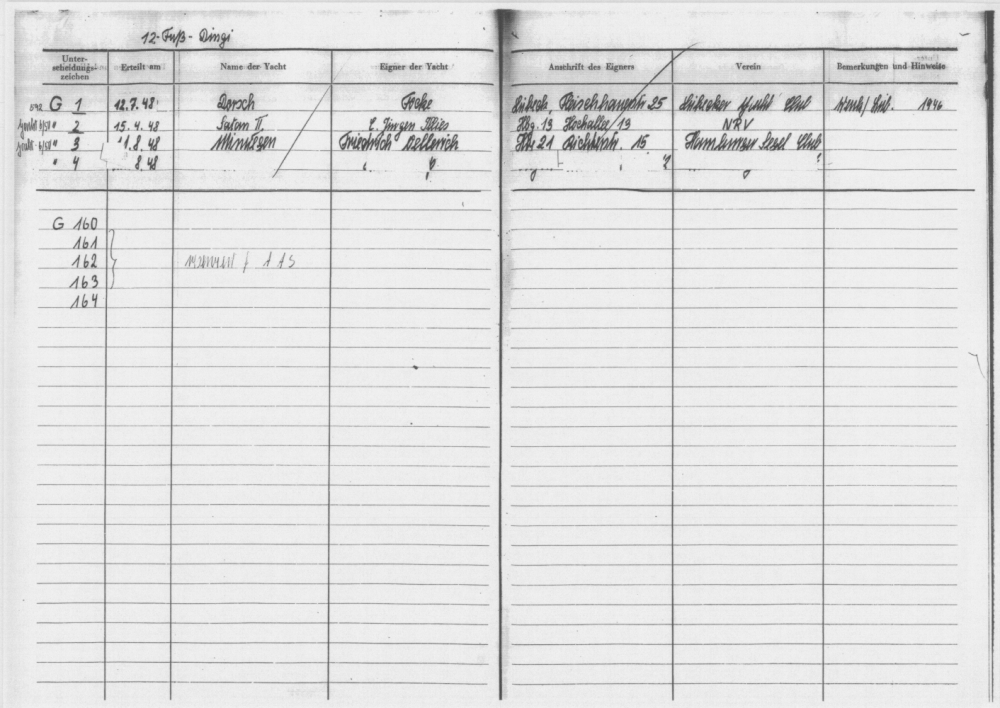 12-Fuß-Dingi
Unter-scheidungs-zeichen Erteilt am Name der Yacht Eigner der Yacht Anschrift des Eigners Verein Bemerkungen und Hinweise
G 1 12.7.48 Dorsch Lübeck, Fleischhauerstr 25 Lübecker Yacht Club 1946
" 2 15.4.48 Satan II C. Jürgen Illies Hbg. 13 Hochallee 13 NRV
" 3 1.8.48 Friedrich Hbg 21 15 Hamburger Segel Club
" 4 8.48 " "
G 160
161
162
163
164